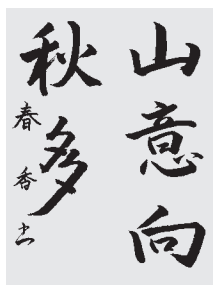 山意向
秋多
春香书